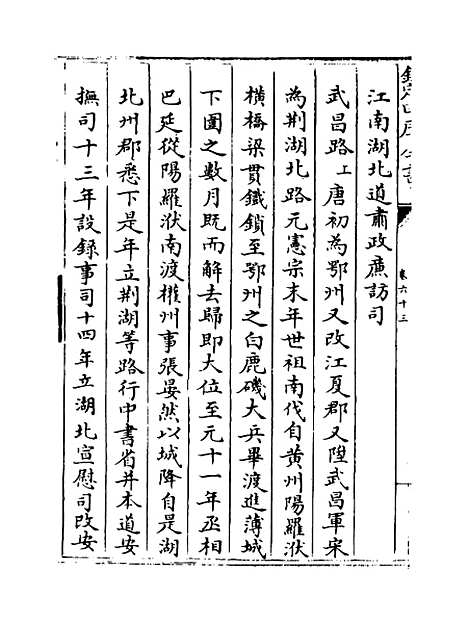 欽定四庫全書
卷六十三
江南湖北道肅政廉訪司
武昌路上唐初為鄂州又改江夏郡又陞武昌軍宋
為荆湖北路元憲宗末年世祖南伐自黄州陽羅洑
横橋梁貫鐵鎖至鄂州之白鹿磯大兵畢渡進薄城
下圍之數月既而解去歸即大位至元十一年丞相
巴延從陽羅洑南渡權州事張晏然以城降自是湖
北州郡悉下是年立荆湖等路行中書省并本道安
撫司十三年設録事司十四年立湖北宣慰司改安